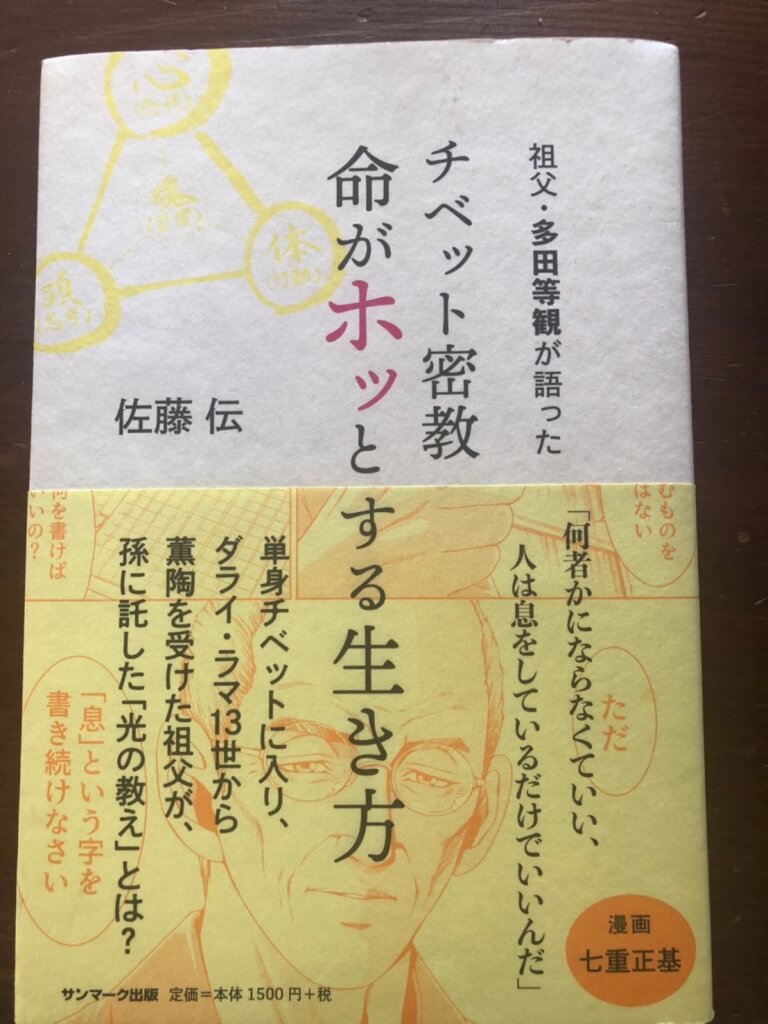 祖父・多田等観が語った
チベット密教
命がホッとする生き方
佐藤 伝
心
魂
体
頭
「何者かにならなくていい、
人は息をしているだけでいいんだ」
単身チベットに入り、
ダライ・ラマ13世から
薫陶を受けた祖父が、
孫に託した「光の教え」とは？
むものを
はない
何を書けば
いいの？
ただ
「息」という字を
書き続けなさい
漫画
七重正基
サンマーク出版 定価＝本体1500円＋税